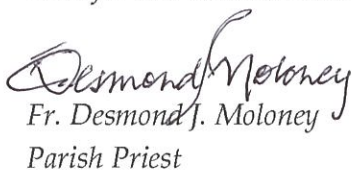 Desmond Moloney
Fr. Desmond J. Moloney
Parish Priest